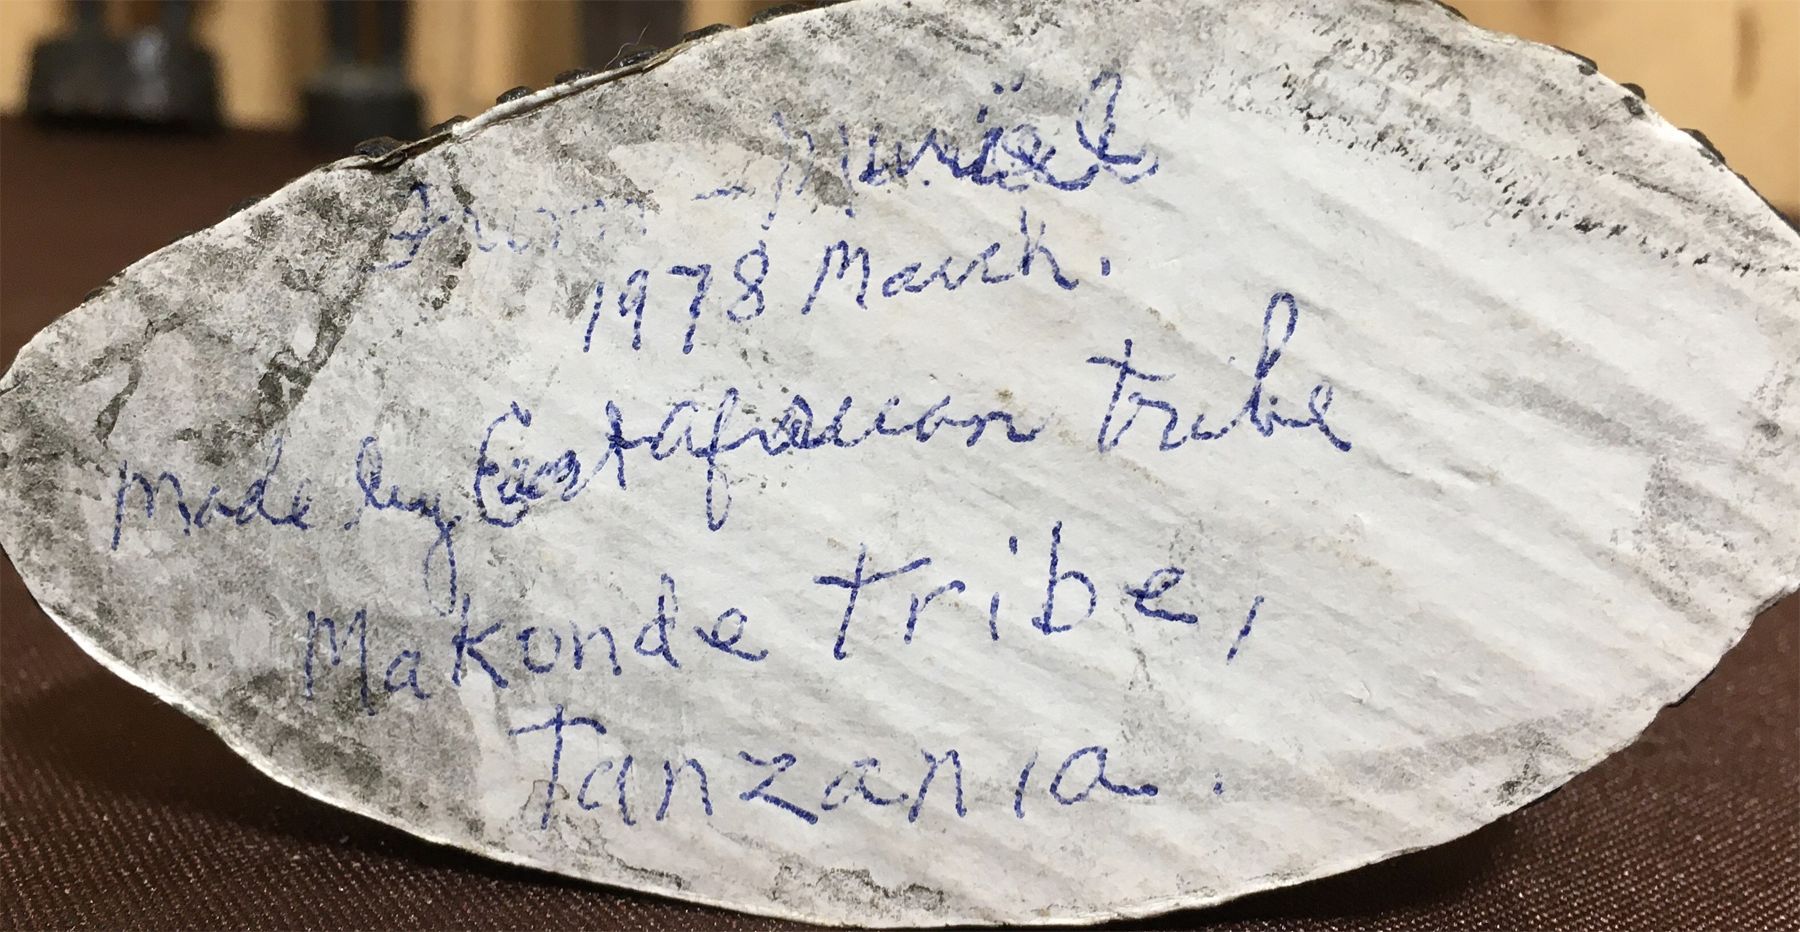 From Muriel
1978 March.
Made by East african tribe
Makonde tribe,
Tanzania.